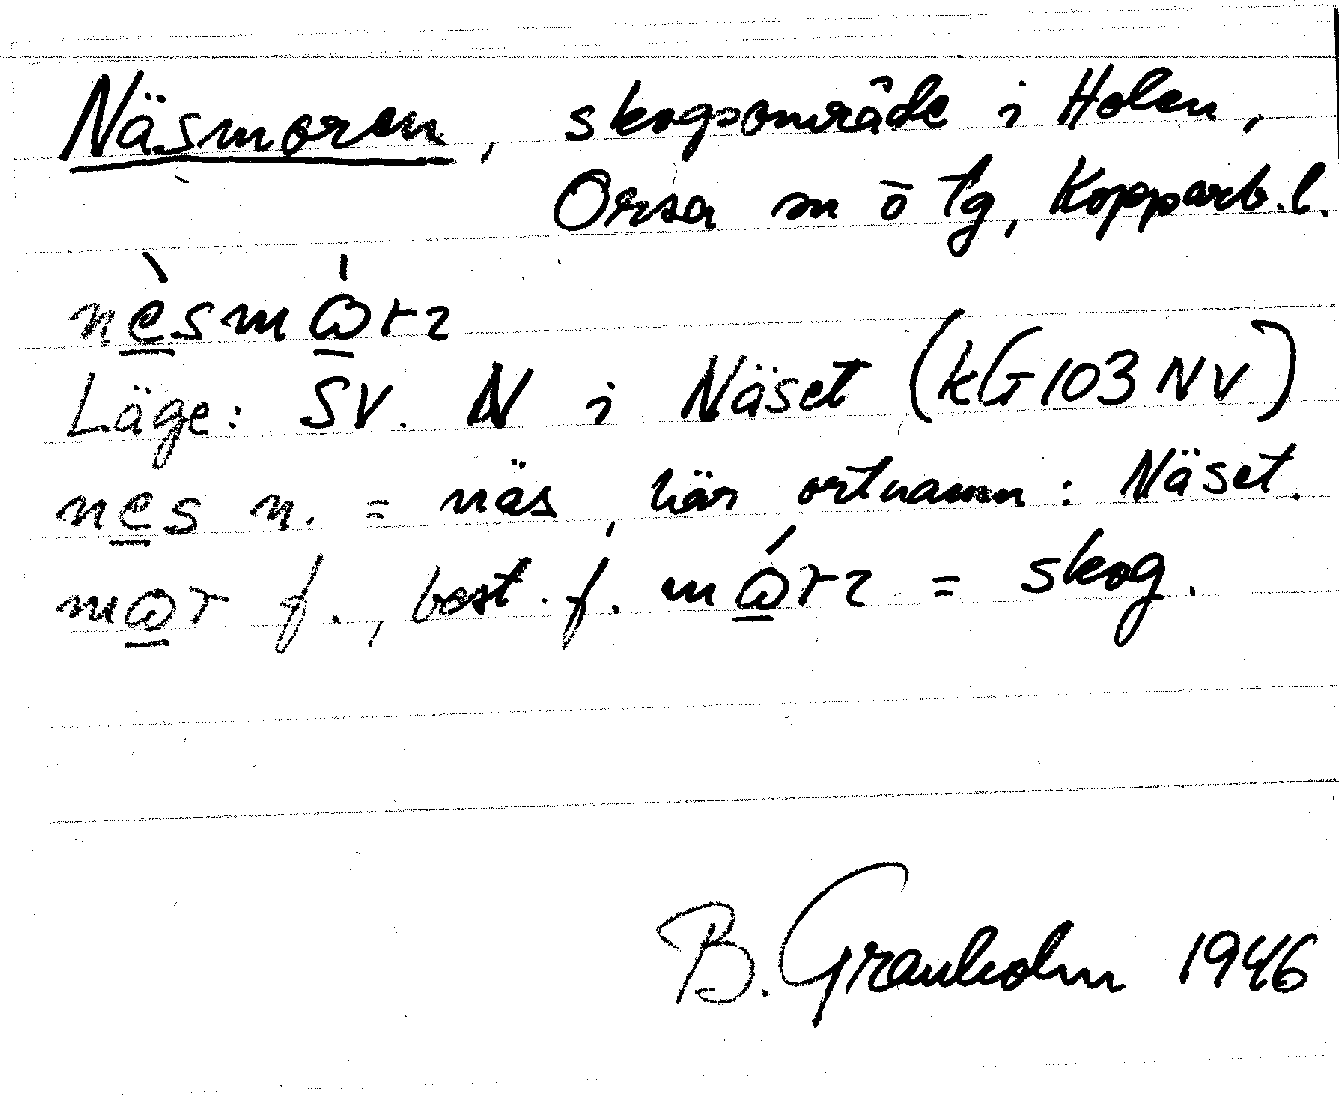 Näsmoren, skogsområde i Holen,
Orsa sn ö tg, Kopparb.l.
Läge: SV. N i Näset (kG103NV)
nes n. = näs, här ortnamn: Näset.
f., best. f. = skog.
B. Granholm 1946